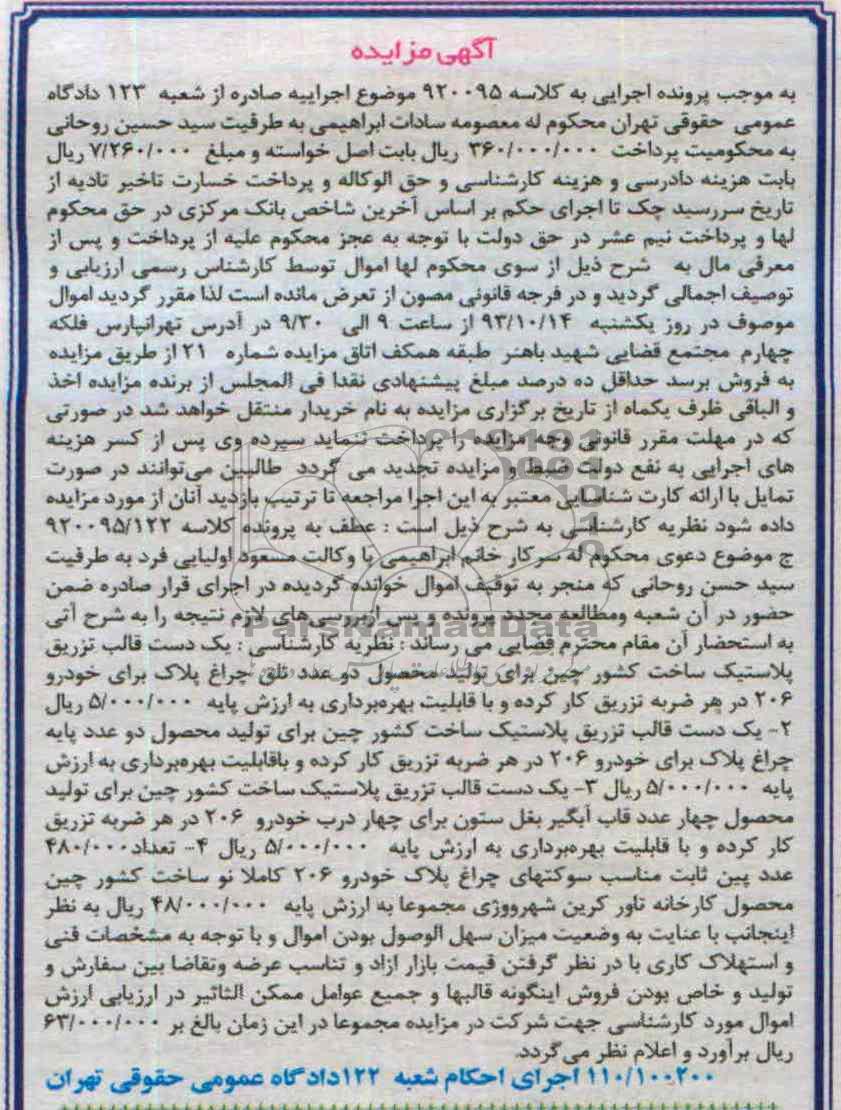 آگهی مزایده
به موجب پرونده اجرایی به کلاسه ۹۲۰۰۹۵ موضوع اجراییه صادره از شعبه ۱۲۳ دادگاه
عمومی حقوقی تهران محکوم له معصومه سادات ابراهیمی به طرفیت سید حسین روحانی
به محکومیت پرداخت ۳۶۰/۰۰۰/۰۰۰ ریال بابت اصل خواسته و مبلغ ۷/۲۶۰/۰۰۰ ریال
بابت هزینه دادرسی و هزینه کارشناسی و حق الوکاله و پرداخت خسارت تاخیر تادیه از
تاریخ سررسید چک تا اجرای حکم بر اساس آخرین شاخص بانک مرکزی در حق محکوم
لها و پرداخت نیم عشر در حق دولت با توجه به عجز محکوم علیه از پرداخت و پس از
معرفی مال به شرح ذیل از سوی محکوم لها اموال توسط کارشناس رسمی ارزیابی و
توصیف اجمالی گردید و در فرجه قانونی مصون از تعرض مانده است لذا مقرر گردید اموال
موصوف در روز یکشنبه ۹۳/۱۰/۱۴ از ساعت ۹ الی ۹/۳۰ در آدرس تهرانپارس فلکه
چهارم مجتمع قضایی شهید باهنر طبقه همکف اتاق مزایده شماره ۲۱ از طریق مزایده
به فروش برسد حداقل ده درصد مبلغ پیشنهادی نقدا فی المجلس از برنده مزایده اخذ
و الباقی ظرف یکماه از تاریخ برگزاری مزایده به نام خریدار منتقل خواهد شد در صورتی
که در مهلت مقرر قانونی وجه مزایده را پرداخت ننماید سپرده وی پس از کسر هزینه
های اجرایی به نفع دولت ضبط و مزایده تجدید می گردد طالبین می‌توانند در صورت
تمایل با ارائه کارت شناسایی معتبر به این اجرا مراجعه تا ترتیب بازدید آنان از مورد مزایده
داده شود نظریه کارشناسی به شرح ذیل است : عطف به پرونده کلاسه ۹۲۰۰۹۵/۱۲۲
ج موضوع دعوی محکوم له سرکار خانم ابراهیمی با وکالت مسعود اولیایی فرد به طرفیت
سید حسن روحانی که منجر به توقیف اموال خوانده گردیده در اجرای قرار صادره ضمن
حضور در آن شعبه ومطالعه مجدد پرونده و پس ازبررسی‌های لازم نتیجه را به شرح آتی
ParsNamadData
به استحضار آن مقام محترم قضایی می رساند : نظریه کارشناسی : یک دست قالب تزریق
پلاستیک ساخت کشور چین برای تولید محصول دو عدد تلق چراغ پلاک برای خودرو
۲۰۶ در هر ضربه تزریق کار کرده و با قابلیت بهره‌برداری به ارزش پایه ۵/۰۰۰/۰۰۰ ریال
۲- یک دست قالب تزریق پلاستیک ساخت کشور چین برای تولید محصول دو عدد پایه
چراغ پلاک برای خودرو ۲۰۶ در هر ضربه تزریق کار کرده و باقابلیت بهره‌برداری به ارزش
پایه ۵/۰۰۰/۰۰۰ ریال ۳- یک دست قالب تزریق پلاستیک ساخت کشور چین برای تولید
محصول چهار عدد قاب آبگیر بغل ستون برای چهار درب خودرو ۲۰۶ در هر ضربه تزریق
کار کرده و با قابلیت بهره‌برداری به ارزش پایه ۵/۰۰۰/۰۰۰ ریال ۴- تعداد۴۸۰/۰۰۰
عدد پین ثابت مناسب سوکتهای چراغ پلاک خودرو ۲۰۶ کاملا نو ساخت کشور چین
محصول کارخانه تاور کرین شهرووژی مجموعا به ارزش پایه ۴۸/۰۰۰/۰۰۰ ریال به نظر
اینجانب با عنایت به وضعیت میزان سهل الوصول بودن اموال و با توجه به مشخصات فنی
و استهلاک کاری با در نظر گرفتن قیمت بازار ازاد و تناسب عرضه وتقاضا بین سفارش و
تولید و خاص بودن فروش اینگونه قالبها و جمیع عوامل ممکن التاثیر در ارزیابی ارزش
اموال مورد کارشناسی جهت شرکت در مزایده مجموعا در این زمان بالغ بر ۶۳/۰۰۰/۰۰۰
ریال برآورد و اعلام نظر می‌گردد.
۱۱۰/۱۰۰۲۰۰ اجرای احکام شعبه ۱۲۲دادگاه عمومی حقوقی تهران